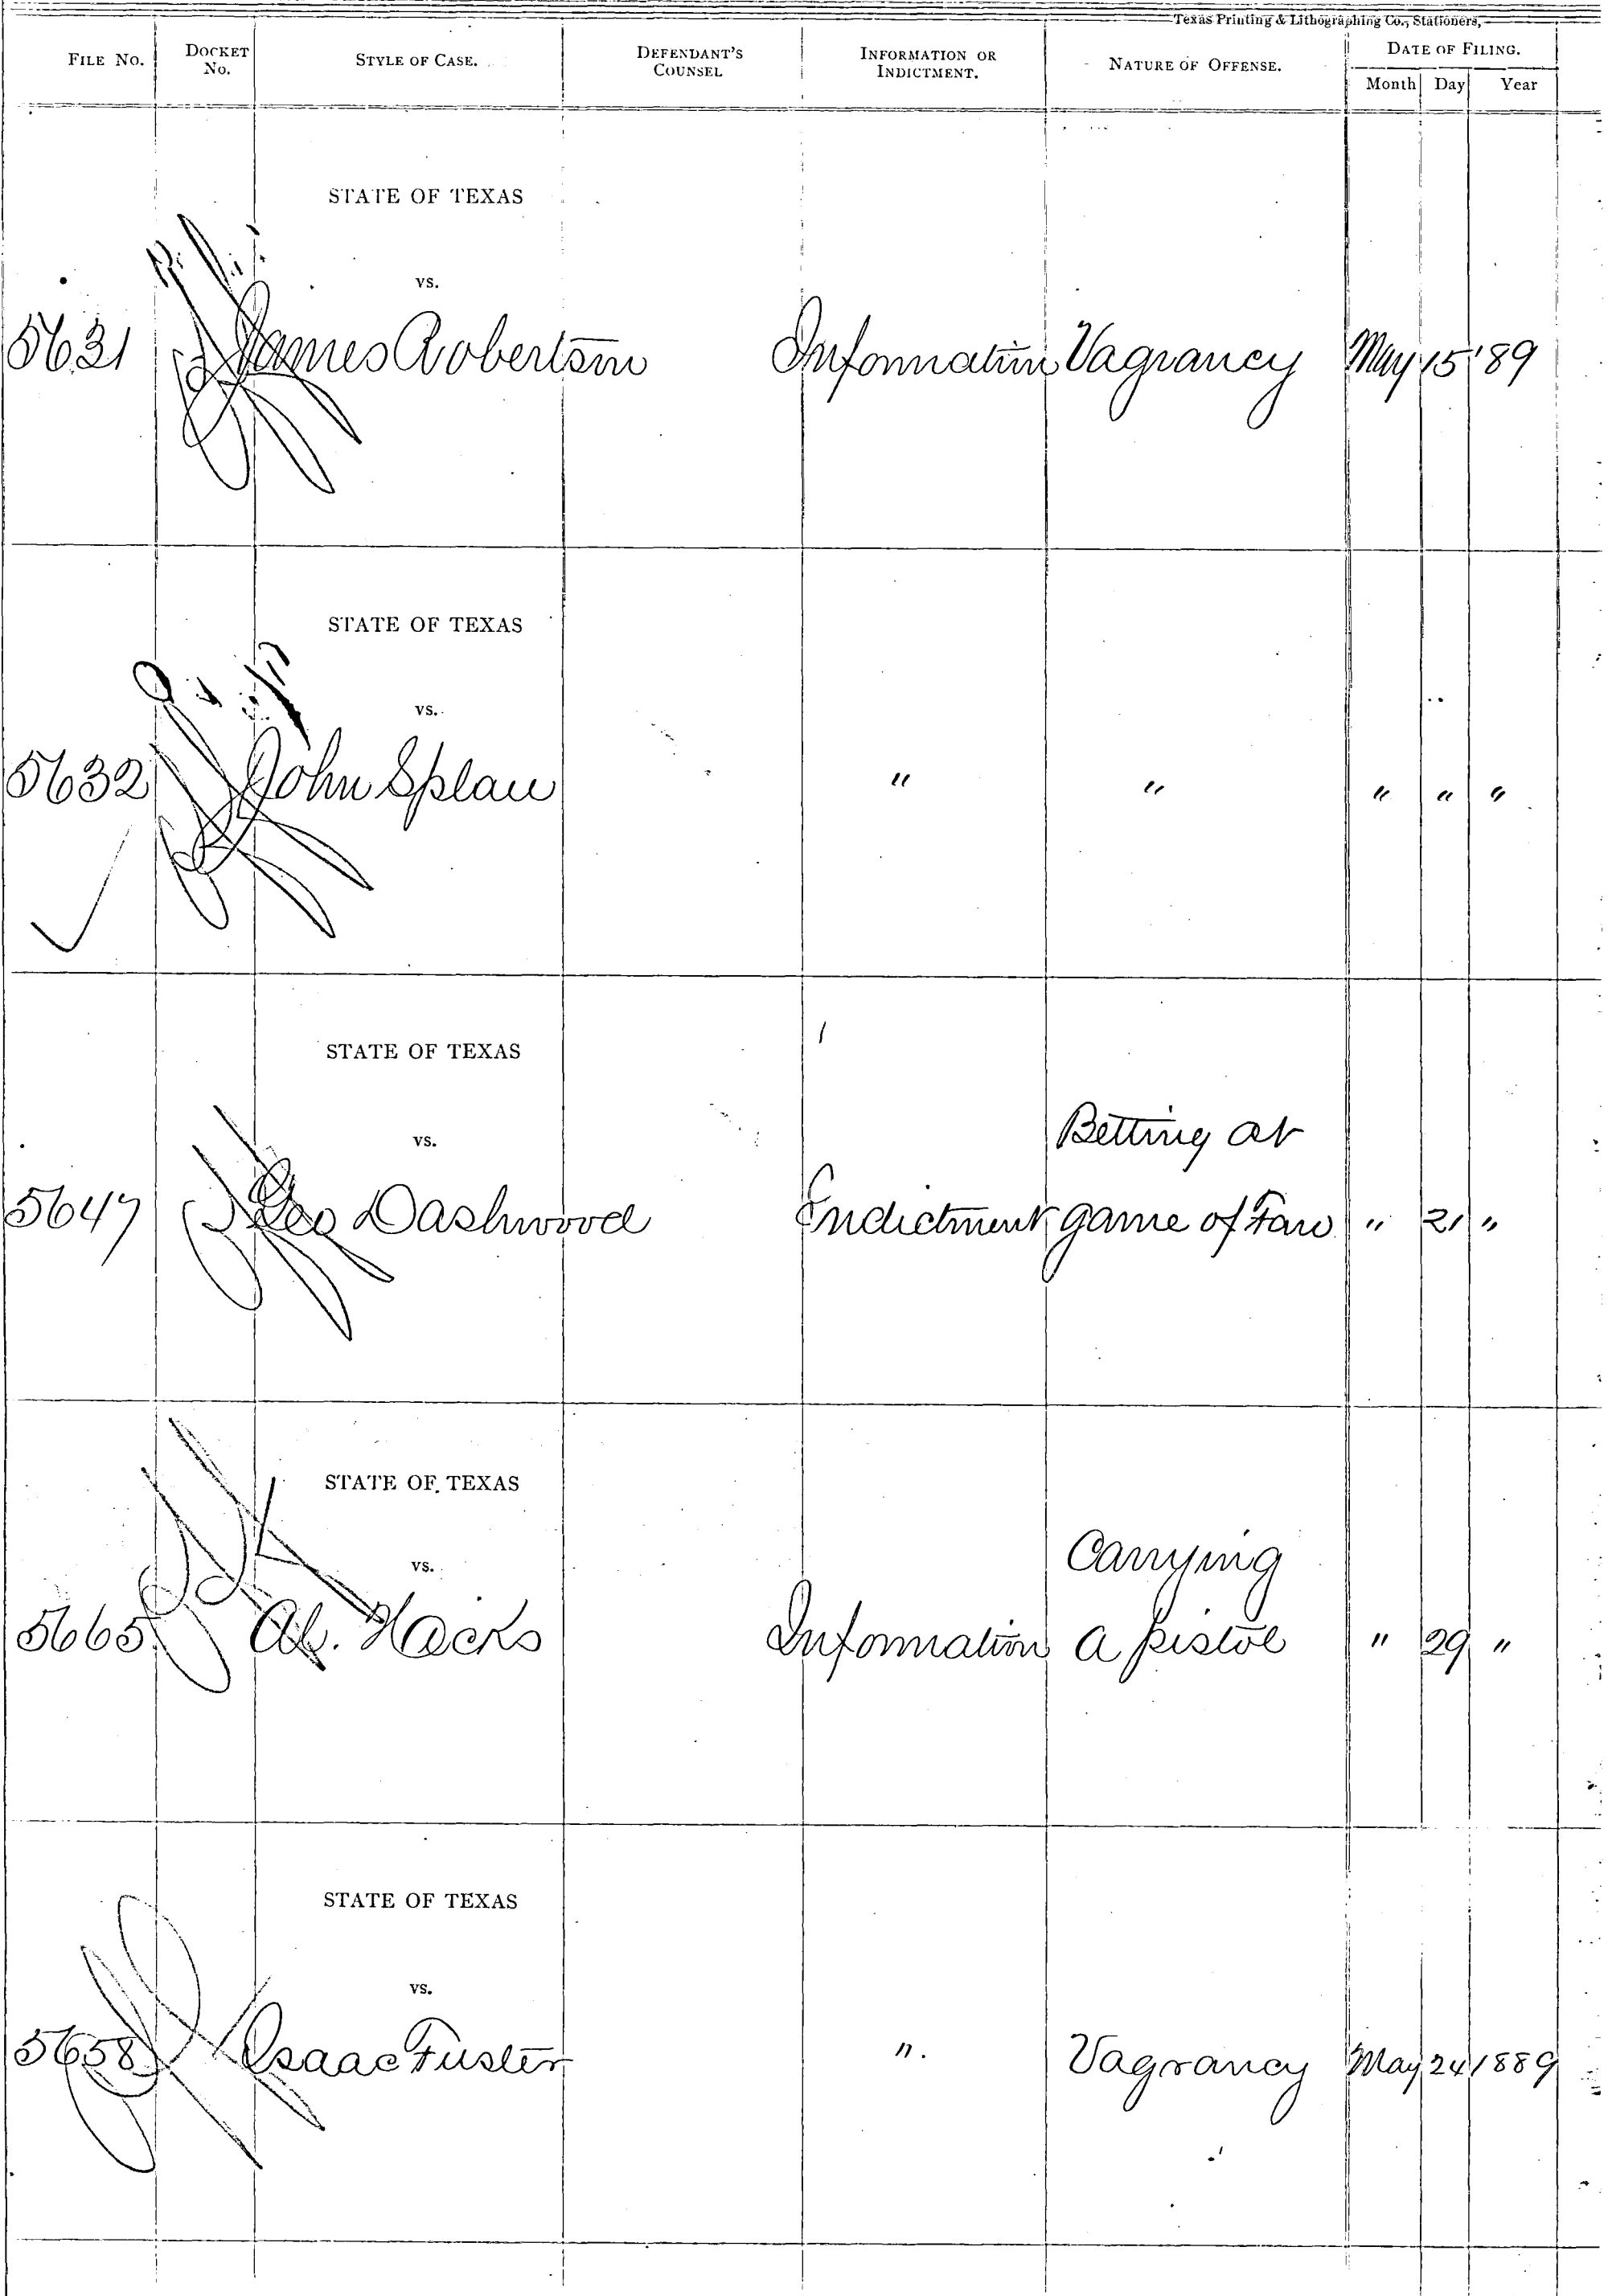 Texas Printing & Lithographing Co., Stationers,
FILE NO. DOCKET No. STYLE OF CASE. DEFENDANT'S COUNSEL INFORMATION OR INDICTMENT. NATURE OF OFFENSE. DATE OF FILING.
Month Day Year
STATE OF TEXAS
vs.
5631 James Robertson Information Vagrancy May 15 '89
STATE OF TEXAS
vs.
5632 John Splau " " " " "
STATE OF TEXAS
vs.
Betting at
5647 Geo Dashwood Indictment game of Faro " 21 "
STATE OF TEXAS
vs.
Carrying
5665 Ab. Hacks Information a pistol " 29 "
STATE OF TEXAS
vs.
5658 Isaac Fuster " Vagrancy May 24 1889